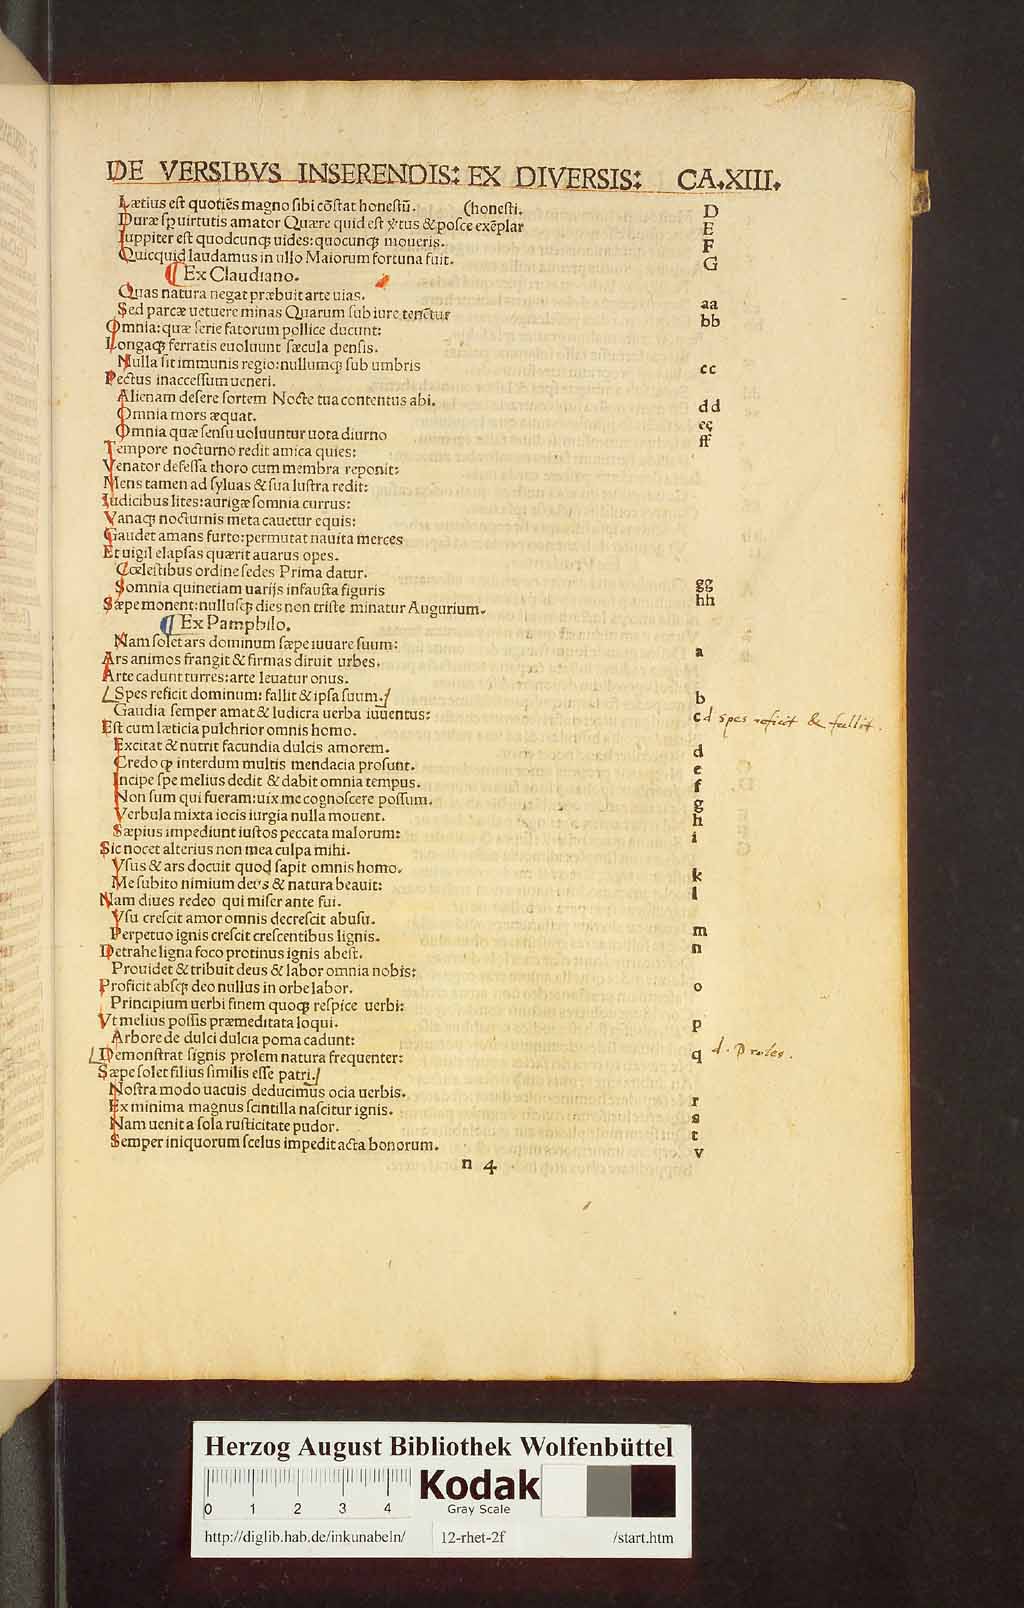 DE VERSIBVS INSERENDIS: EX DIVERSIS: CA.XIII.
Lætius eſt quotiẽs magno ſibi cõſtat honeſtũ. (honeſti. D
Duræ ſp uirtutis amator Quære quid eſt v̓tus & poſce exẽplar E
Iuppiter eſt quodcunqꝫ uides: quocunqꝫ moueris. F
Quicquid laudamus in ullo Maiorum fortuna fuit. G
¶ Ex Claudiano.
Quas natura negat præbuit arte uias. aa
Sed parcæ uetuere minas Quarum ſub iure tenẽtur bb
Omnia: quæ ſerie fatorum pollice ducunt:
Longaqꝫ ferratis euoluunt ſæcula penſis.
Nulla ſit immunis regio: nullumqꝫ ſub umbris cc
Pectus inacceſſum ueneri.
Alienam deſere ſortem Nocte tua contentus abi. dd
Omnia mors æquat. ee
Omnia quæ ſenſu uoluuntur uota diurno ff
Tempore nocturno redit amica quies:
Venator defeſſa thoro cum membra reponit:
Mens tamen ad ſyluas & ſua luſtra redit:
Iudicibus lites: aurigæ ſomnia currus:
Vanaqꝫ nocturnis meta cauetur equis:
Gaudet amans furto: permutat nauita merces
Et uigil elapſas quærit auarus opes.
Cœleſtibus ordine ſedes Prima datur. gg
Somnia quinetiam uarijs infauſta figuris hh
Sæpe monent: nulluſqꝫ dies non triſte minatur Augurium.
¶ Ex Pamphilo.
Nam ſolet ars dominum ſæpe iuuare ſuum: a
Ars animos frangit & firmas diruit urbes.
Arte cadunt turres: arte leuatur onus.
Spes reficit dominum: fallit & ipſa ſuum. b
Gaudia ſemper amat & ludicra uerba iuuentus: c d spes reficit & fallit.
Eſt cum læticia pulchrior omnis homo.
Excitat & nutrit facundia dulcis amorem. d
Credo qꝫ interdum multis mendacia proſunt. e
Incipe ſpe melius dedit & dabit omnia tempus. f
Non ſum qui fueram: uix me cognoſcere poſſum. g
Verbula mixta iocis iurgia nulla mouent. h
Sæpius impediunt iuſtos peccata malorum: i
Sic nocet alterius non mea culpa mihi.
Vſus & ars docuit quod ſapit omnis homo. k
Me ſubito nimium deus & natura beauit: l
Nam diues redeo qui miſer ante fui.
Vſu creſcit amor omnis decreſcit abuſu. m
Perpetuo ignis creſcit creſcentibus lignis. n
Detrahe ligna foco protinus ignis abeſt.
Prouidet & tribuit deus & labor omnia nobis: o
Proficit abſqꝫ deo nullus in orbe labor.
Principium uerbi finem quoqꝫ reſpice uerbi: p
Vt melius poſſis præmeditata loqui.
Arbore de dulci dulcia poma cadunt: q
Demonſtrat ſignis prolem natura frequenter: d. Proles.
Sæpe ſolet filius ſimilis eſſe patri.
Noſtra modo uacuis deducimus ocia uerbis. r
Ex minima magnus ſcintilla naſcitur ignis. s
Nam uenit a ſola ruſticitate pudor. t
Semper iniquorum ſcelus impedit acta bonorum. v
n 4
Herzog August Bibliothek Wolfenbüttel
Kodak
Gray Scale
0 1 2 3 4
http://diglib.hab.de/inkunabeln/ 12-rhet-2f /start.htm